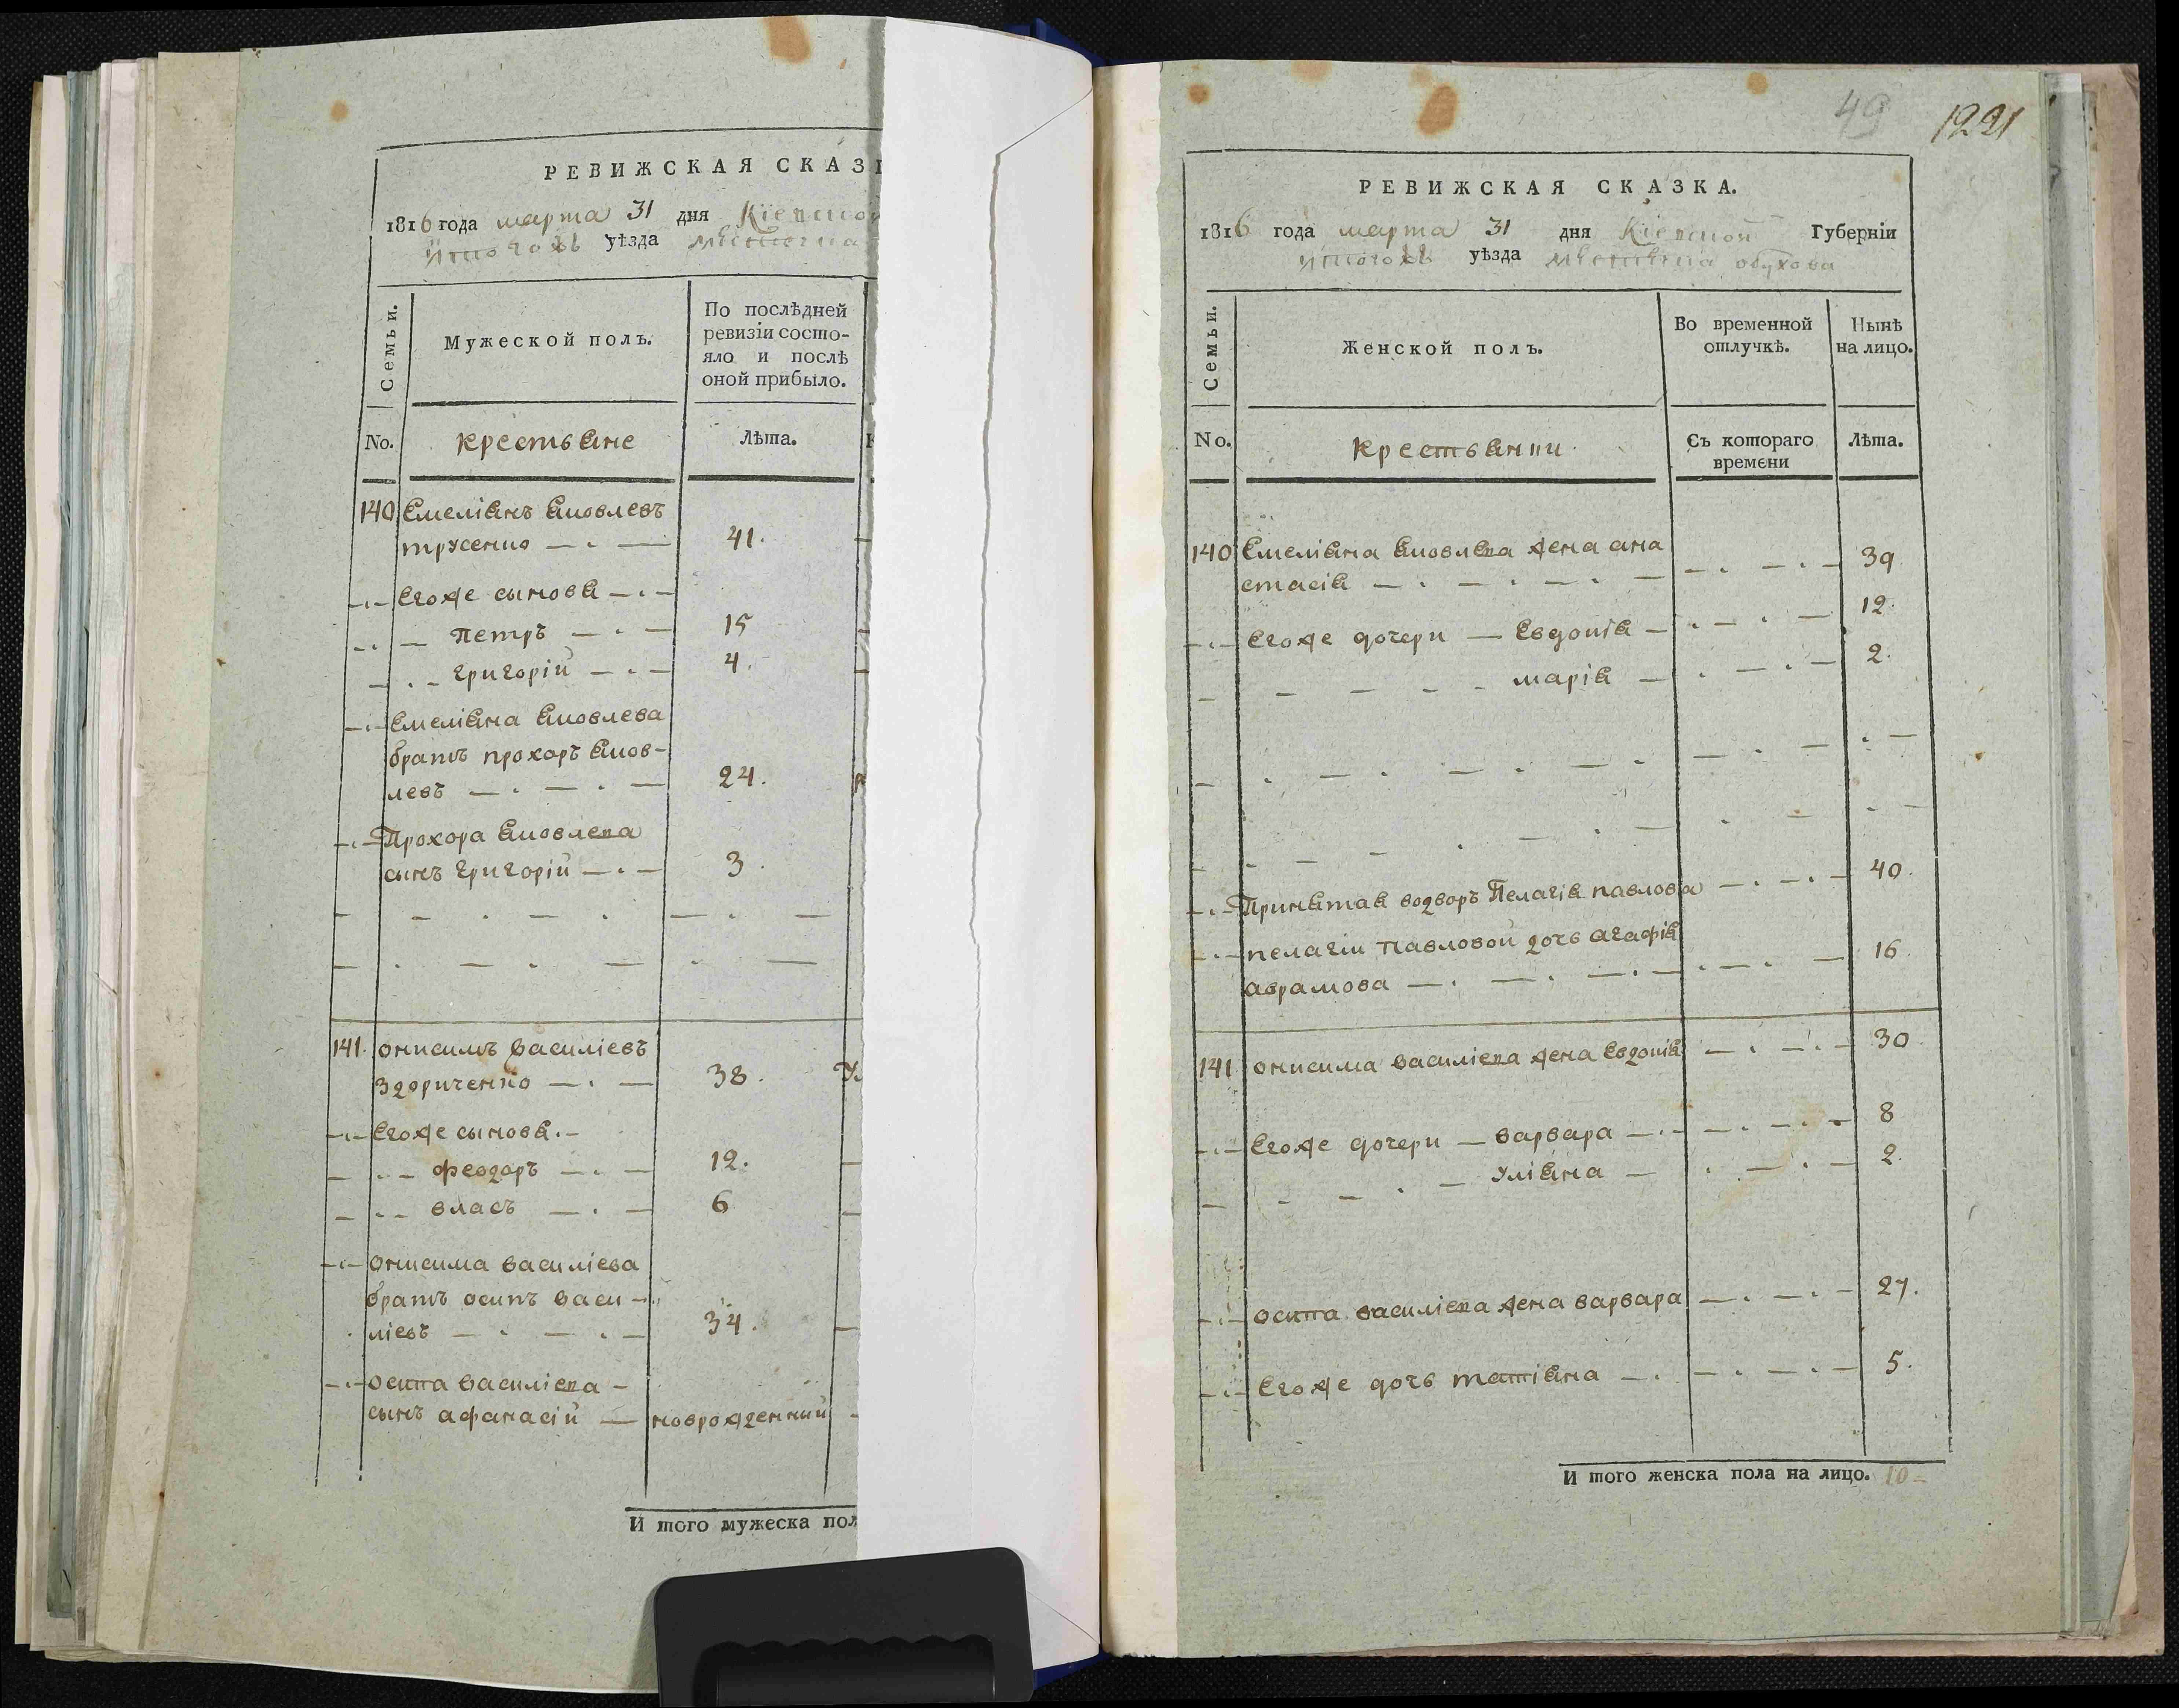 РЕВИЖСКАЯ СКАЗ
1816 года марта 31 дня Кіевской
уѣзда местечка
Семьи.
Мужеской полъ.
По послѣдней
ревизіи состо-
яло и послѣ
оной прибыло.
No.
крестьяне
Лѣта.
140 Емеліянъ Яковлевъ
трусенко — . — 41.
— . — Егоже сынове — . —
. . — Петръ — . — 15
— . . — Григорій — . — 4.
— . — Емеліяна Яковлева
братъ прохоръ Яков-
левъ — . — . — 24.
— . — Прохора Яковлева
сынъ Григорій — . — 3.
141. онисимъ Василіевъ
Здориченко — . — 38.
— . — Егоже сынове . —
— . . — феодоръ — . — 12.
— . . — власъ — . — 6
— . — онисима василіева
братъ осипъ васи —
. ліевъ — . — . — 34.
— . — осипа василіева —
сынъ афанасій — новрожденний
И того мужеска пол
49 1221
РЕВИЖСКАЯ СКАЗКА.
1816 года марта 31 дня Кіевской Губерніи
уѣзда местечка обухова
Семьи.
Женской полъ.
Во временной
отлучкѣ.
Нынѣ
на лицо.
No.
крестьянки
Съ котораго
времени
Лѣта.
140 Емеліяна Яковлева жена ана
стасія — . — . — . — 39
— . — Егоже дочери — Евдокія — 12.
марія — 2.
— . — Принятая водворъ Пелагія павлова — . — . — 40.
— . — пелагіи Павловой дочь агафія
аврамова — . — . — . — 16.
141 онисима василіева жена Евдокія — . — . — 30
— . — Егоже дочери — варвара — . — 8
Уліяна — 2.
— . — осипа василіева жена варвара — . — . — 27.
— . — Егоже дочь татіяна — . — . — 5.
И того женска пола на лицо. 10 =